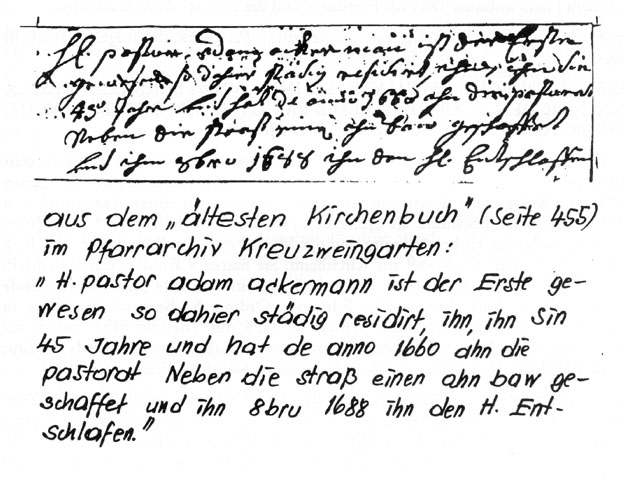 hl. pastor adam ackerman ist der Erste
gewesen so dahier städig residirt, ihn, ihn Sin
45 Jahr und hat de anno 1660 ahn die pastorat
Neben die straß einen ahn baw geschaffet
und ihn 8bru 1688 ihn den hl. Entschlaffen
aus dem „ältesten Kirchenbuch" (Seite 455)
im Pfarrarchiv Kreuzweingarten:
„H. pastor adam ackermann ist der Erste ge-
wesen so dahier städig residirt, ihn, ihn Sin
45 Jahre und hat de anno 1660 ahn die
pastorat Neben die straß einen ahn baw ge-
schaffet und ihn 8bru 1688 ihn den H. Ent-
schlafen."